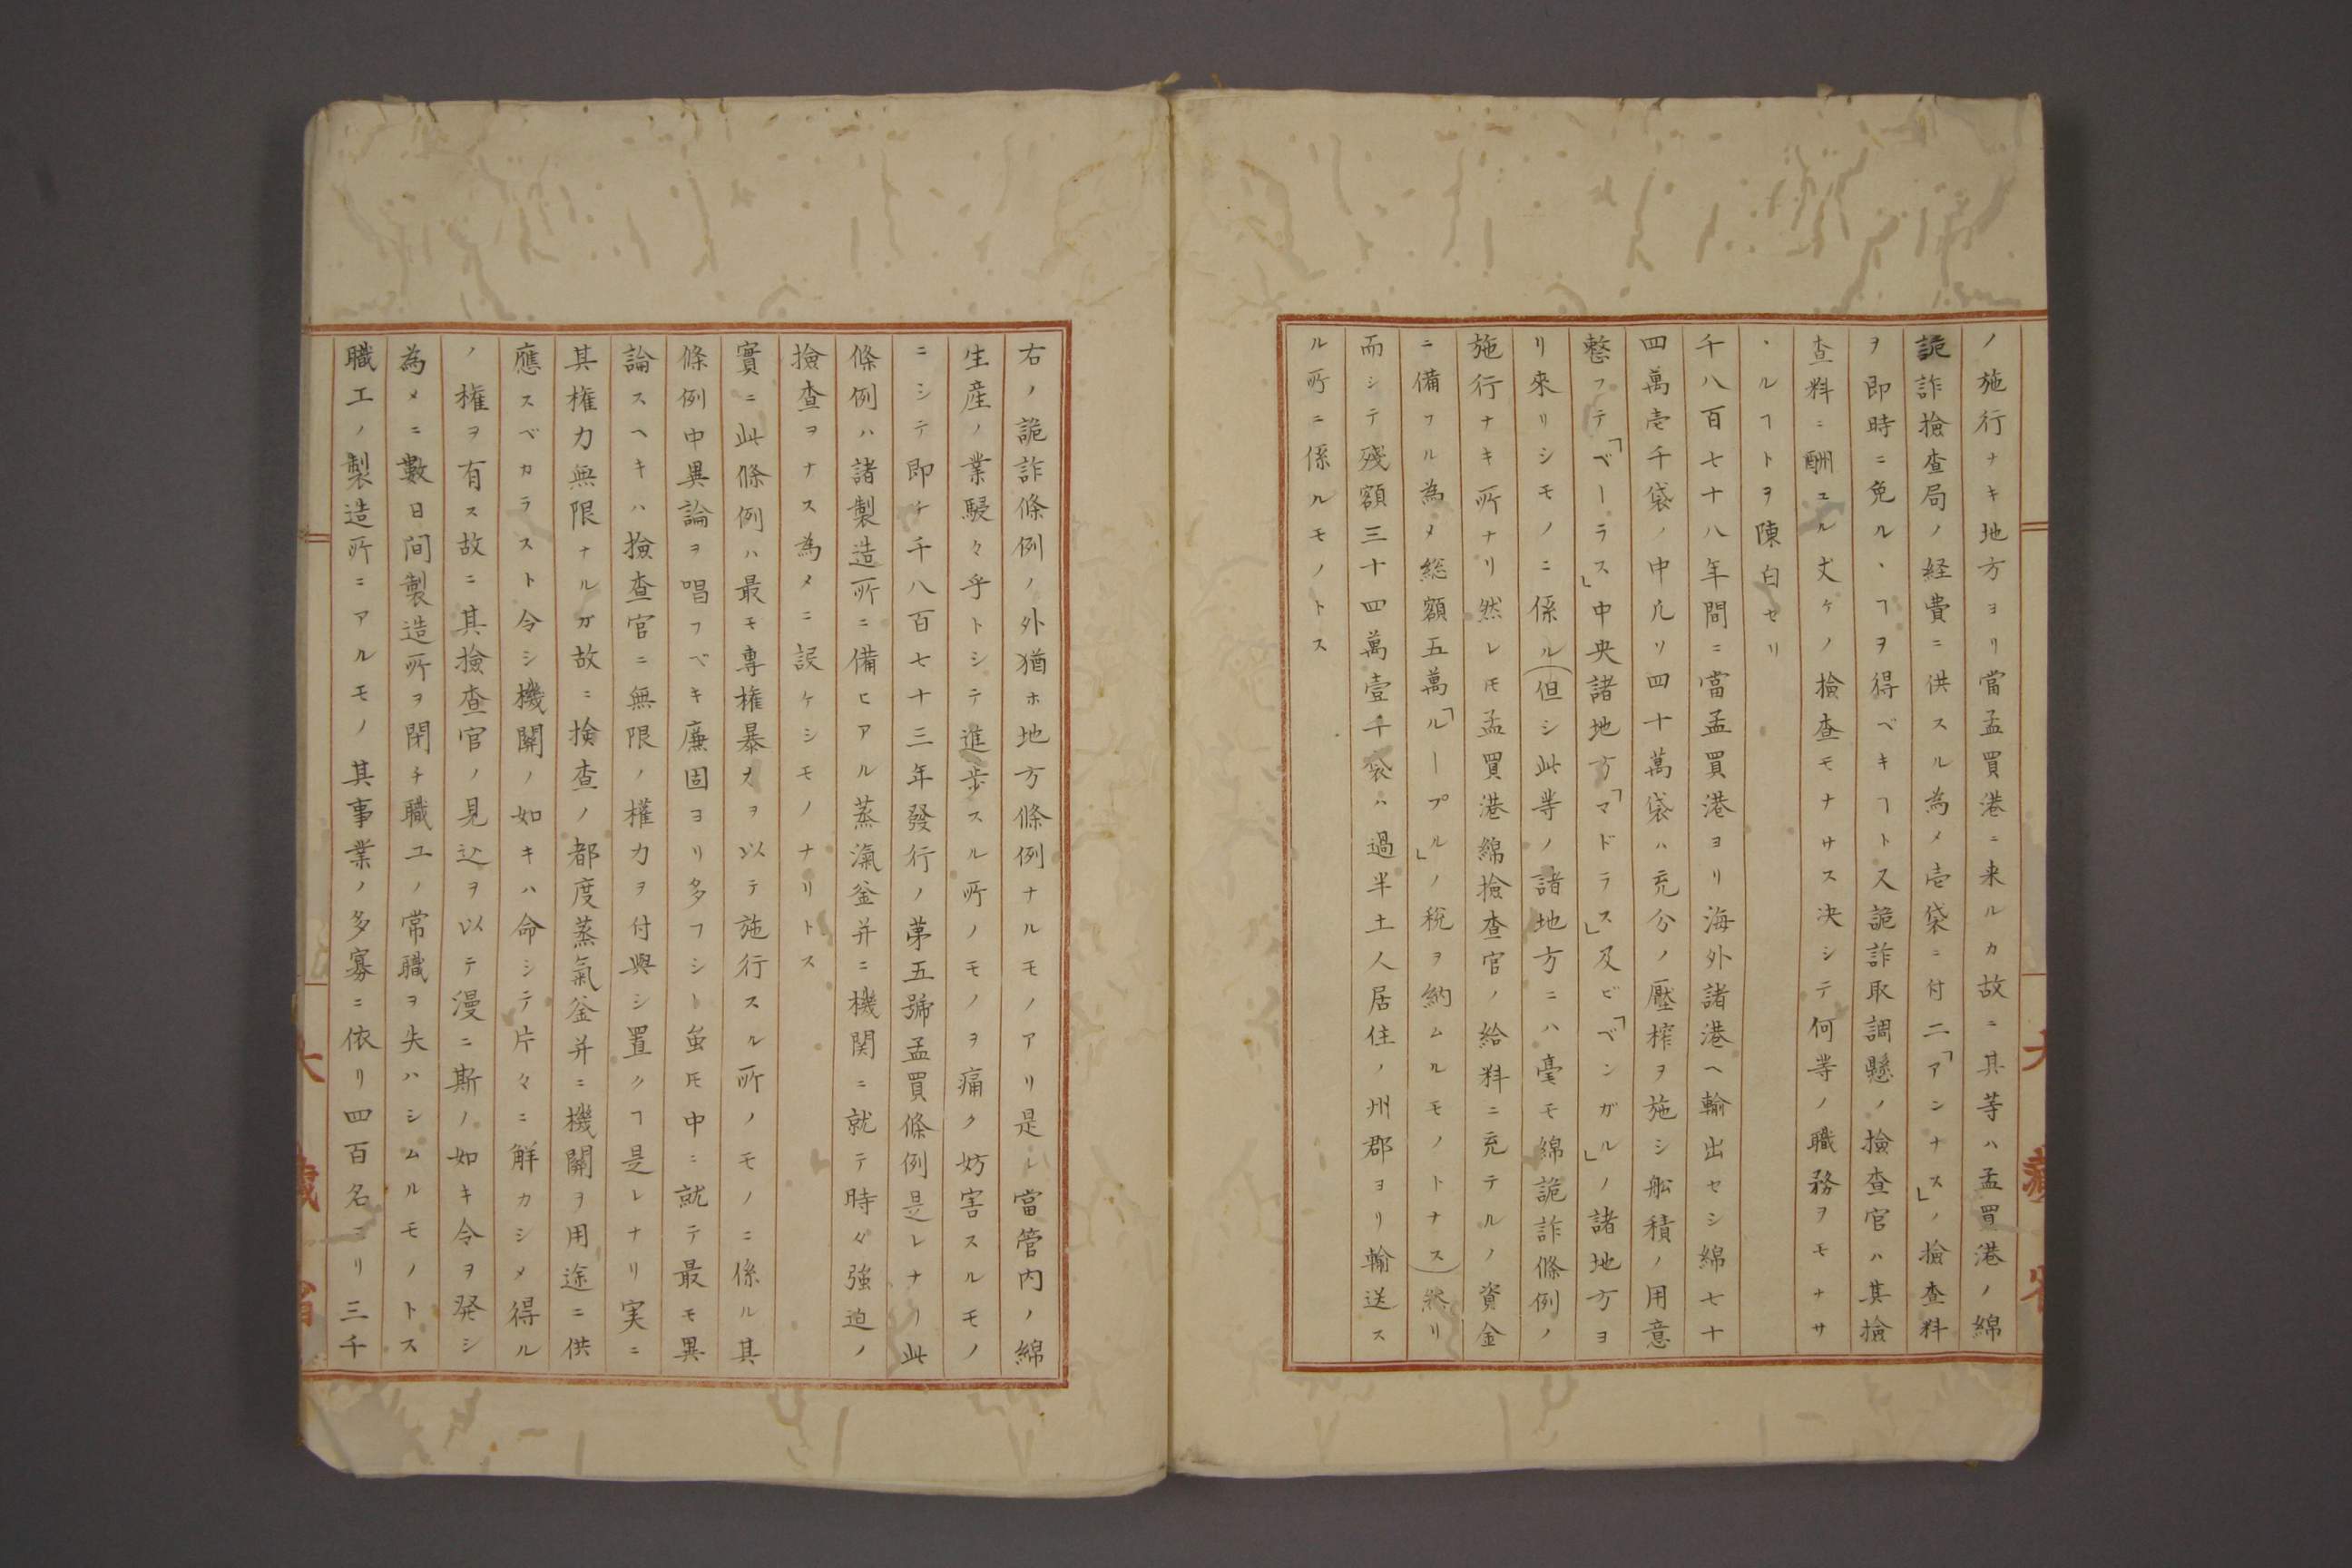 ノ施行ナキ地方ヨリ當孟買港ニ来ルカ故ニ其等ハ孟買港ノ綿
詭詐撿査局ノ経費ニ供スル為メ壱袋ニ付二「アンナス」ノ撿査料
ヲ即時ニ免ルヽヿヲ得ベキヿト又詭詐取調懸ノ撿査官ハ其撿
査料ニ酬ユル丈ケノ撿査モナサス决シテ何等ノ職務ヲモナサ
ヽルヿトヲ陳白セリ
千八百七十八年間ニ當孟買港ヨリ海外諸港ヘ輸出セシ綿七十
四萬壱千袋ノ中凡ソ四十萬袋ハ充分ノ壓榨ヲ施シ舩積ノ用意
整フテ「ベーラス」中央諸地方「マドラス」及ビ「ベンガル」ノ諸地方ヨ
リ來リシモノニ係ル(但シ此等ノ諸地方ニハ毫モ綿詭詐條例ノ
施行ナキ所ナリ然レ𪜈孟買港綿撿査官ノ給料ニ充テルノ資金
ニ備フル為メ総額五萬「ループル」ノ稅ヲ納ムルモノトナス)終リ
而シテ殘額三十四萬壹千袋ハ過半土人居住ノ州郡ヨリ輸送ス
ル所ニ係ルモノトス
右ノ詭詐條例ノ外猶ホ地方條例ナルモノアリ是レ當管内ノ綿
生産ノ業駸々乎トシテ進歩スル所ノモノヲ痛ク妨害スルモノ
ニシテ即チ千八百七十三年發行ノ苐五號孟買條例是レナリ此
條例ハ諸製造所ニ備ヒアル蒸滊釜并ニ機関ニ就テ時々強迫ノ
撿査ヲナス為メニ設ケシモノナリトス
實ニ此條例ハ最モ専権暴力ヲ以テ施行スル所ノモノニ係ル其
條例中異論ヲ唱フベキ廉固ヨリ多フシト虽𪜈中ニ就テ最モ異
論スヘキハ撿査官ニ無限ノ權力ヲ付與シ置クヿ是レナリ実ニ
其権力無限ナルガ故ニ撿査ノ都度蒸氣釜并ニ機關ヲ用途ニ供
應スベカラスト令シ機關ノ如キハ命シテ片々ニ觧カシメ得ル
ノ権ヲ有ス故ニ其撿査官ノ見込ヲ以テ漫ニ斯ノ如キ令ヲ発シ
為メニ數日间製造所ヲ閉チ職工ノ常職ヲ失ハシムルモノトス
職工ノ製造所ニアルモノ其事業ノ多寡ニ依リ四百名ニリ三千
大藏省